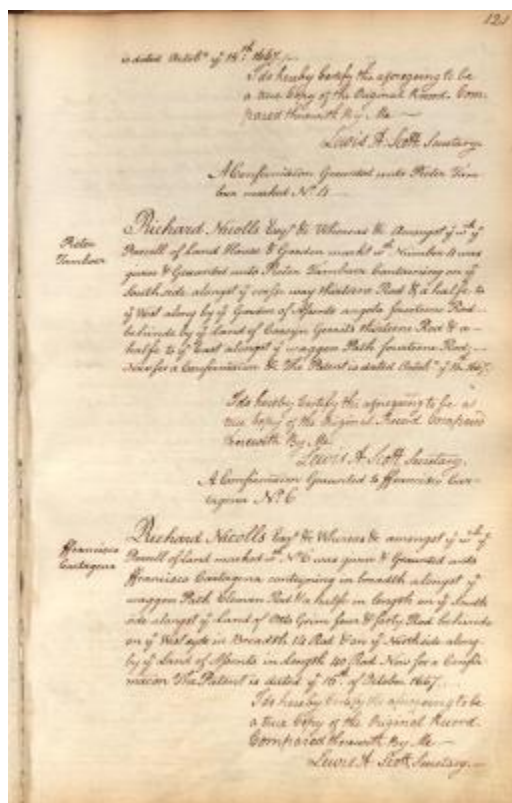 121
is dated Octobr ye 16th 1667.
I do hereby Certify the aforegoing to be
a true Copy of the Original Record. Com-
pared therewith By Me
Lewis A Scott Secretary
A Confirmacon Graunted unto Pieter Tam-
boer marked No. 4
Pieter
Tamboer
Richard Nicolls Esqr &c Whereas &c Amongst ye wch ye
Parcell of Land House & Garden markt wth Number 4 was
given & Graunted unto Pieter Tamboer Containing on ye
South side alongst ye way thirteene Rod & a halfe to
ye West along by ye Garden of Assento angola fourteene Rod
behinde by ye land of Geraits thirteene Rod & a
halfe to ye East alongst ye waggon Path fourteene Rod
Now for a Confirmation &c The Patent is dated Octobr ye 16. 1667.
I do hereby Certify the aforegoing to be a
true Copy of the Original Record Compared
therewith By Me
Lewis A Scott Secretary.
A Confirmacon Graunted to ffrancisco Car-
tagena No. 6
ffrancisco
Cartagena
Richard Nicolls Esqr &c Whereas &c amongst ye wch ye
Parcell of land marked wth No 6 was given & Graunted unto
ffrancisco Cartagena conteyning in breadth alongst ye
waggon Path Eleaven Rod & a halfe in length on ye South
side alongst ye Land of Otto Grim four & forty Rod behinde
on ye West side in Breadth 14 Rod & on ye North side along
by ye Land of Assento in Length 40 Rod Now for a Confir-
macon The Patent is dated ye 16th of October 1667.
I do hereby Certify the aforegoing to be
a true Copy of the Original Record.
Compared therewith By Me
Lewis A Scott Secretary.